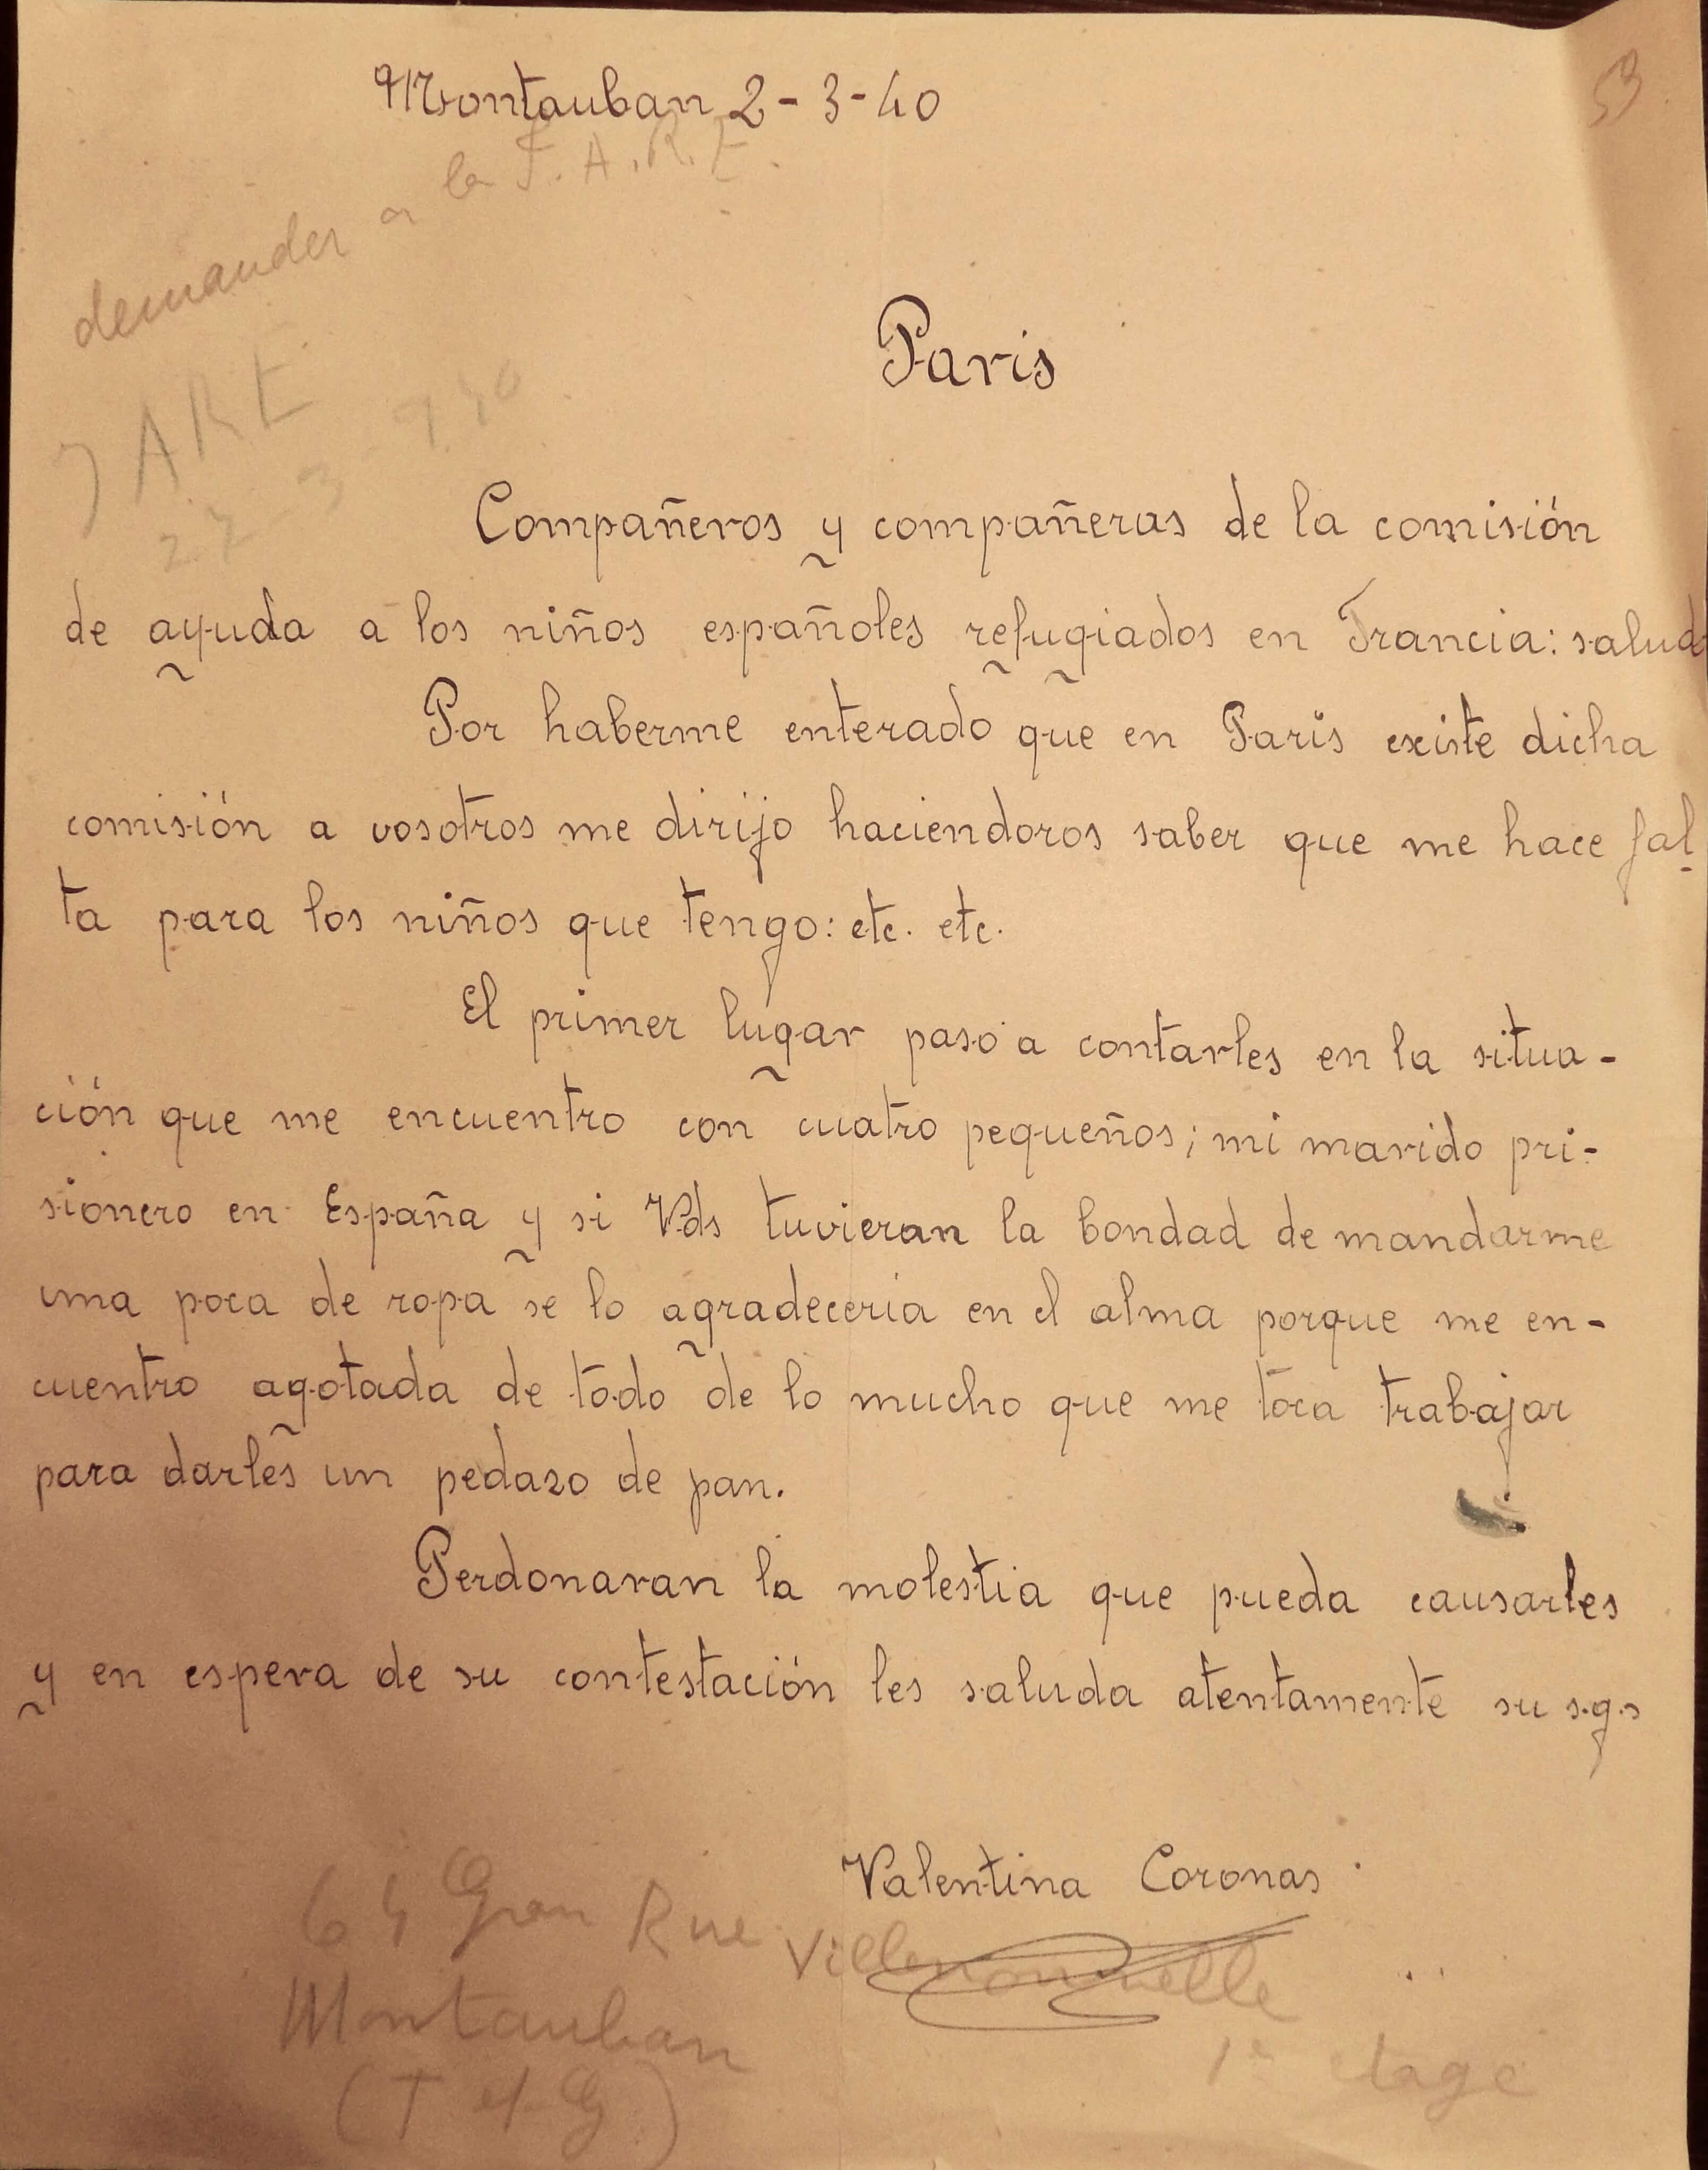 53
Montauban 2-3-40
demander a la J.A.R.E.
Paris
JARE
22-3-940
Compañeros y compañeras de la comisión
de ayuda a los niños españoles refugiados en Francia: salud
Por haberme enterado que en Paris existe dicha
comisión a vosotros me dirijo haciendoros saber que me hace fal-
ta para los niños que tengo: etc. etc.
El primer lugar paso a contarles en la situa-
ción que me encuentro con cuatro pequeños; mi marido pri-
sionero en España y si Vds tuvieran la bondad de mandarme
una poca de ropa se lo agradeceria en el alma porque me en-
cuentro agotada de todo de lo mucho que me toca trabajar
para darles un pedazo de pan.
Perdonaran la molestia que pueda causarles
y en espera de su contestación les saluda atentamente su s.g.s
Valentina Coronas
64 Gran Rue Villenouvelle
Montauban 1e etage
(T et G)